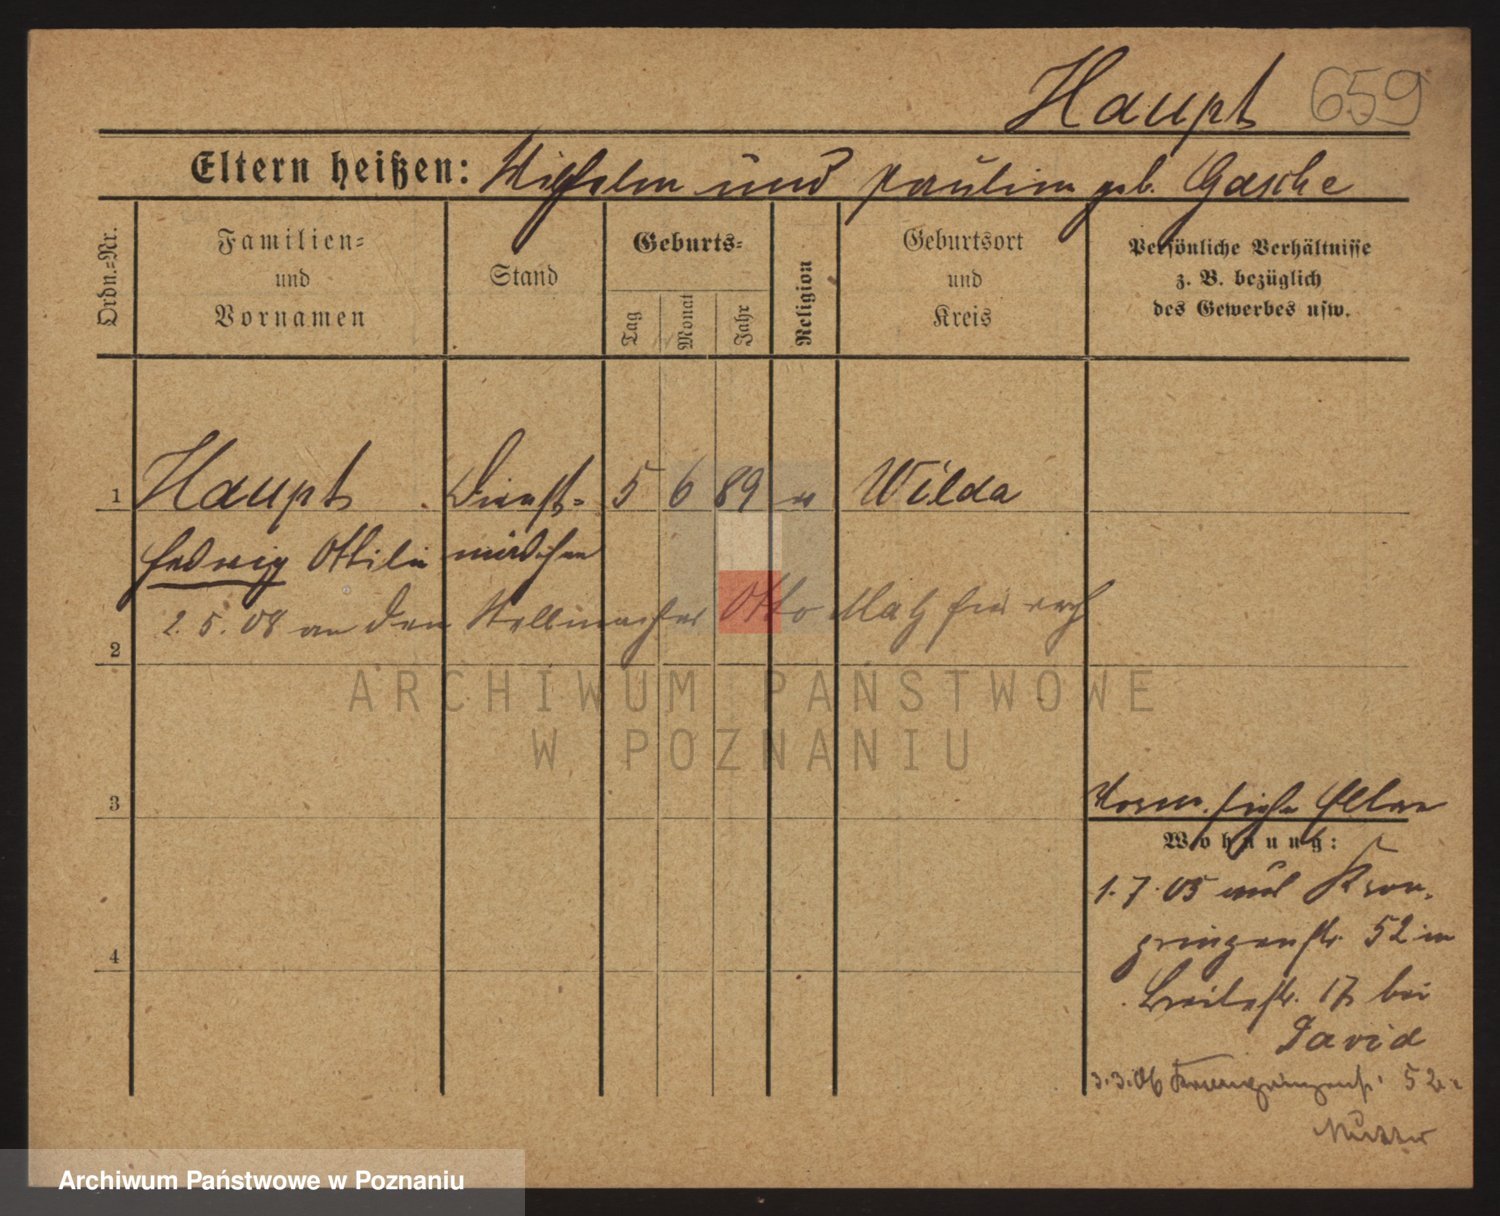 Haupt 659
Eltern heißen: Wilhelm und Pauline geb. Gasche
Ordn.-Nr.
Familien-
und
Vornamen
Stand
Geburts-
Tag
Monat
Jahr
Religion
Geburtsort
und
Kreis
Persönliche Verhältnisse
z. B. bezüglich
des Gewerbes usw.
1 Haupt Dienst- 5 6 89 Wilda
Hedwig Ottilie mädchen
2.5.08 an den Stellmacher Otto Matz
2
ARCHIWUM PAŃSTWOWE
W POZNANIU
3
siehe Eltern
Wohnung:
1.7.05 aus Kron-
prinzenstr. 52 in
4
Breitestr. 17 bei
David
3.3.06 Kronprinzenstr. 52
Mutter
Archiwum Państwowe w Poznaniu